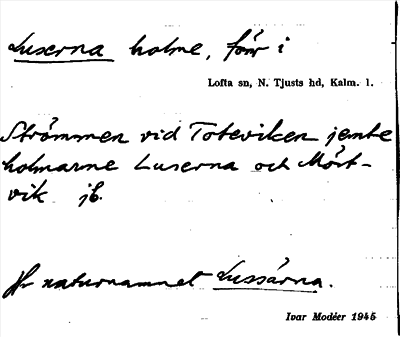 Luserna holme, förr i
Lofta sn, N. Tjusts hd, Kalm. l.
Strömmen vid Toteviken jemte
holmarne Luserna och Mört-
vik jb.
Jfr naturnamnet Lussärna.
Ivar Modéer 1945